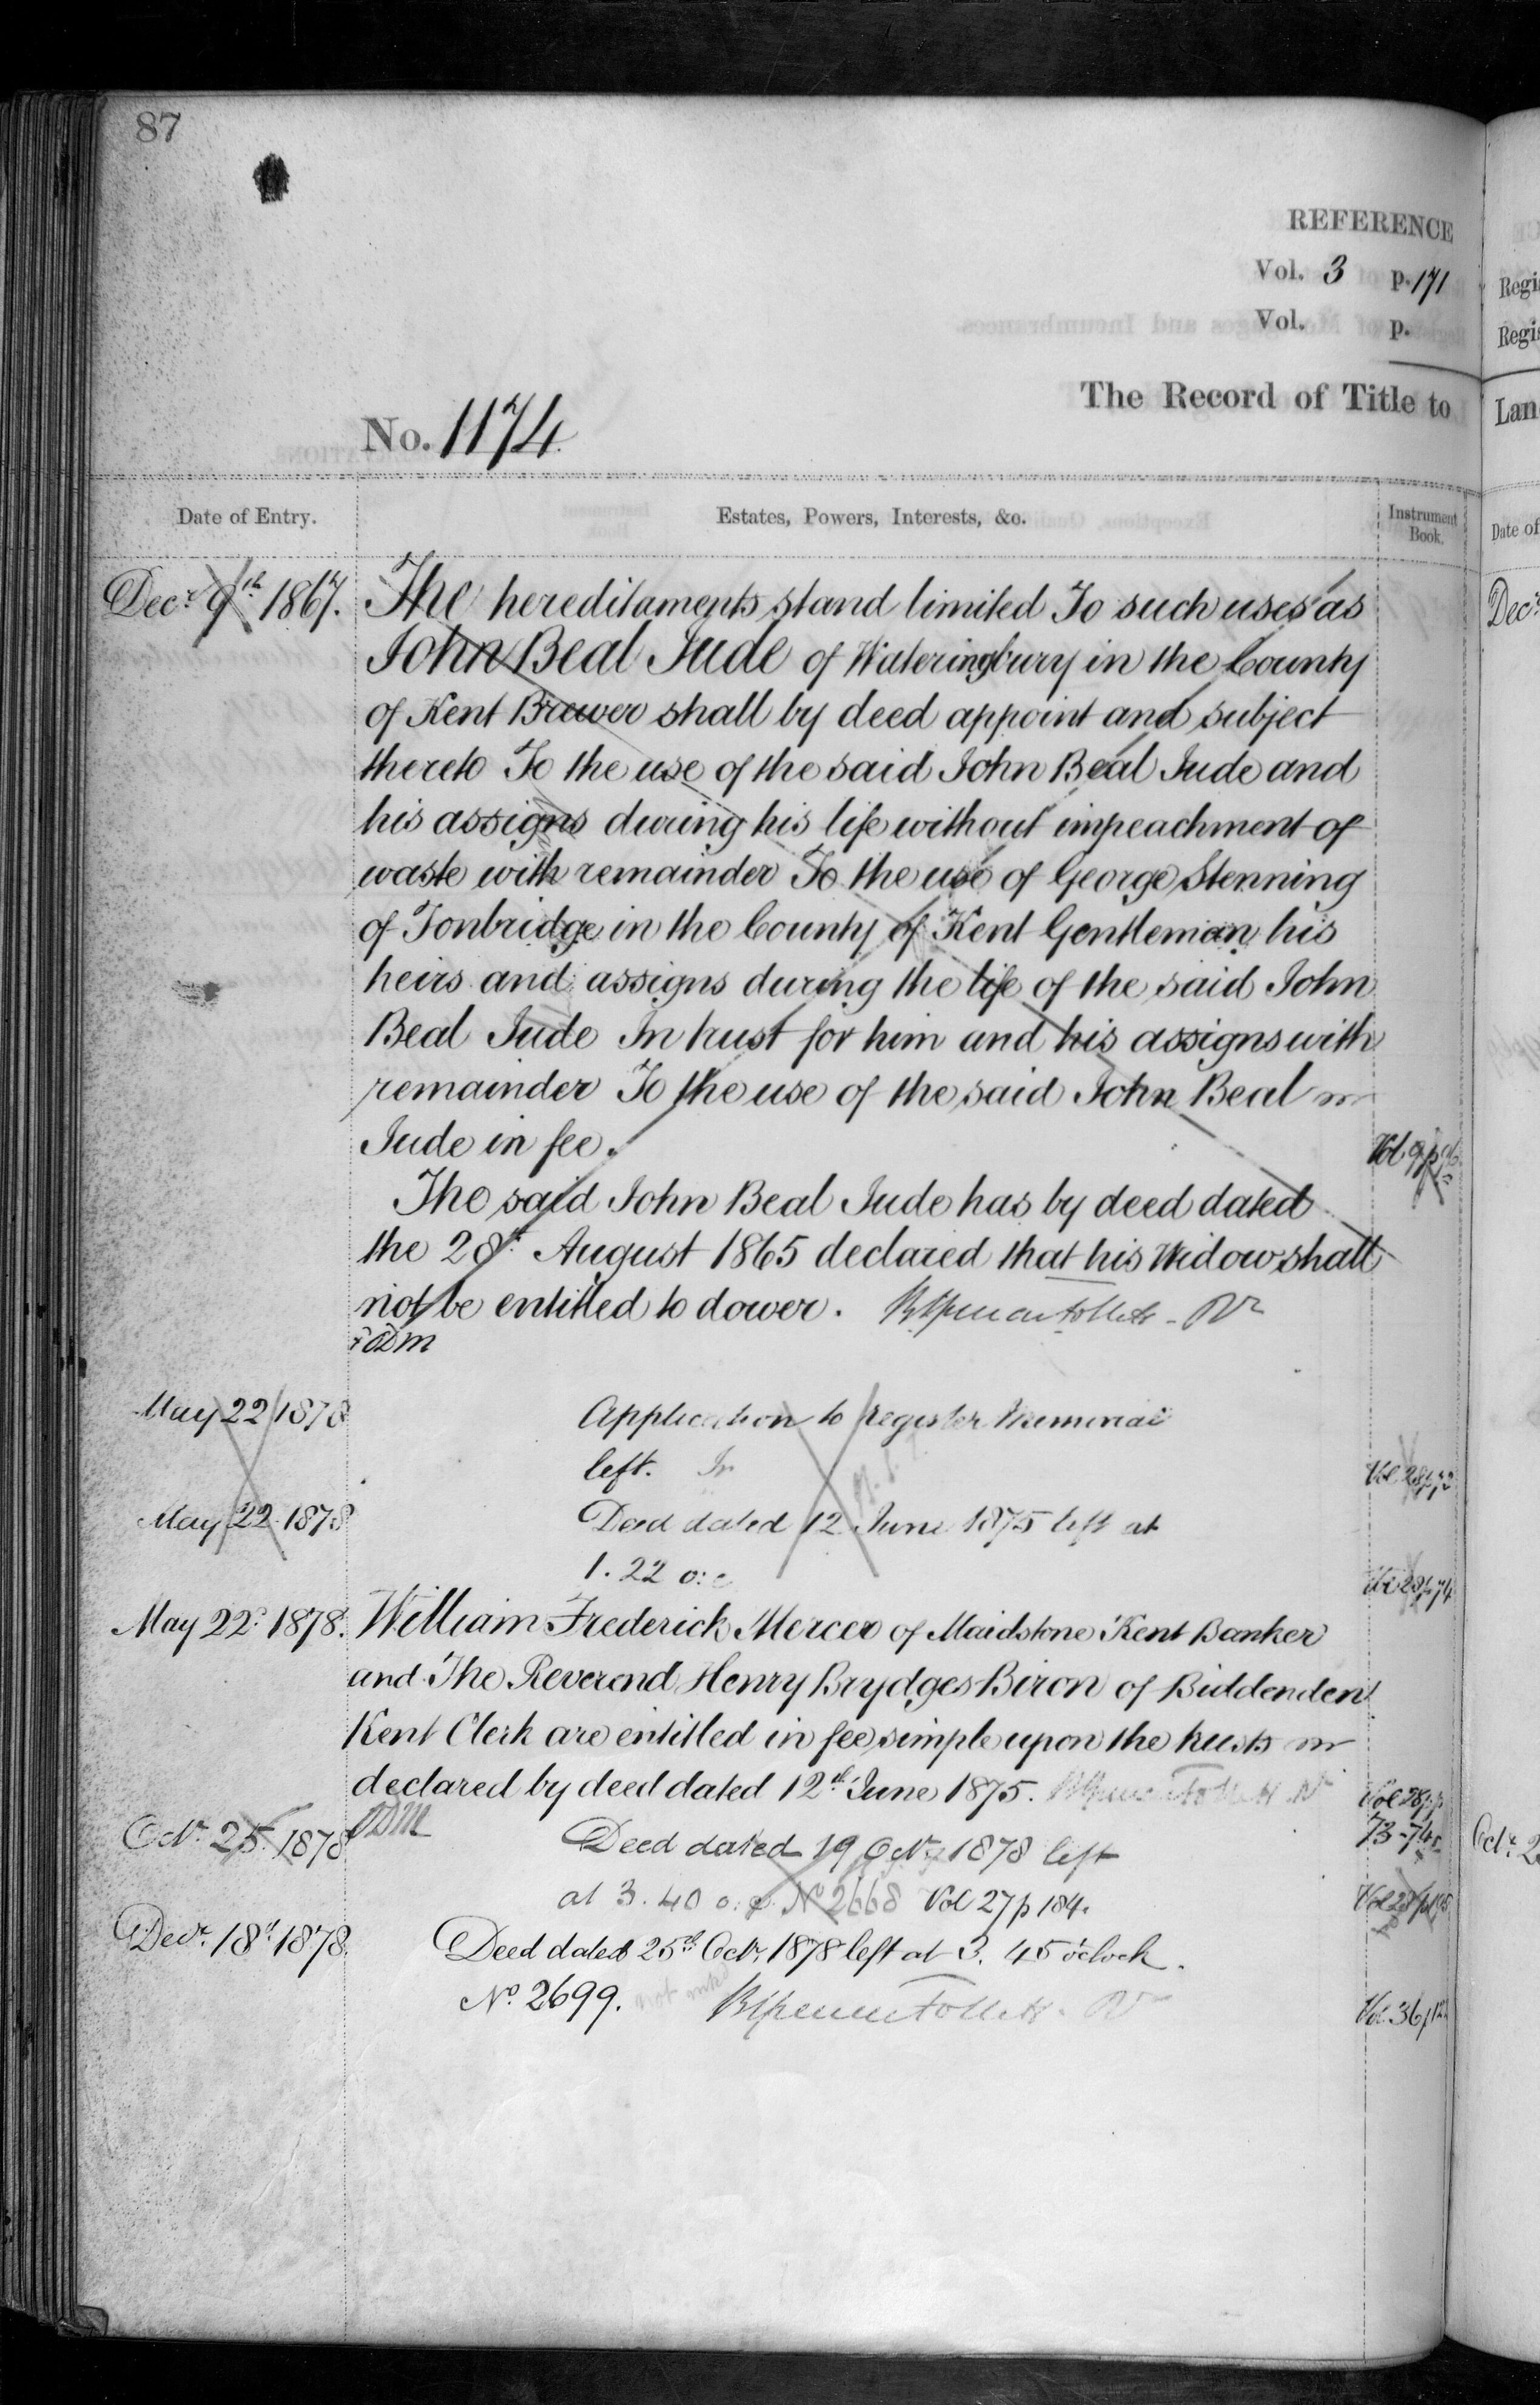 87
REFERENCE
Vol. 3 p. 171
Vol. p.
The Record of Title to
No. 1174
Date of Entry.
Estates, Powers, Interests, &c.
Instrument Book.
Decr. 9th 1867. The hereditaments stand limited To such uses as
John Beal Jude of Wateringbury in the County
of Kent Brewer shall by deed appoint and subject
thereto To the use of the said John Beal Jude and
his assigns during his life without impeachment of
waste with remainder To the use of George Stenning
of Tonbridge in the County of Kent Gentleman his
heirs and assigns during the life of the said John
Beal Jude In trust for him and his assigns with
remainder To the use of the said John Beal
Jude in fee.
Vol 9 p
The said John Beal Jude has by deed dated
the 28th August 1865 declared that his Widow shall
not be entitled to dower.
May 22 1878 Application to register Memorial
left.
Vol 28 p 73
May 22 1878 Deed dated 12 June 1875 left at
1.22 o:c
Vol 28 p 74
May 22d 1878. William Frederick Mercer of Maidstone Kent Banker
and The Reverend Henry Brydges Biron of Biddenden
Kent Clerk are entitled in fee simple upon the trusts
declared by deed dated 12th June 1875.
Vol 28 pp
73-74
Octr. 25. 1878 Deed dated 19 Octr. 1878 left
at 3.40 o.c. No 2668 Vol 27 p 184.
Decr. 18th 1878. Deed dated 25th Octr. 1878 left at 3.45 o'clock.
No. 2699.
Vol. 36 p
Regi
Regis
Lan
Date of
Decr.
Octr. 2